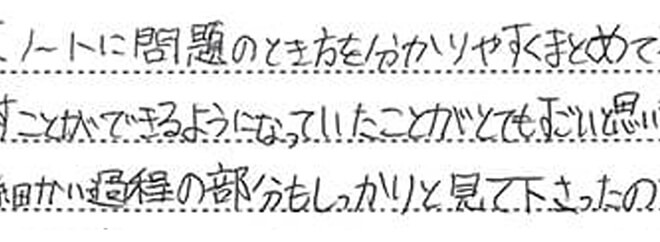 ノートに問題のとき方を分かりやすくまとめて
すことができるようになっていたことがとてもすごいと思い
細かい過程の部分もしっかりと見て下さったの